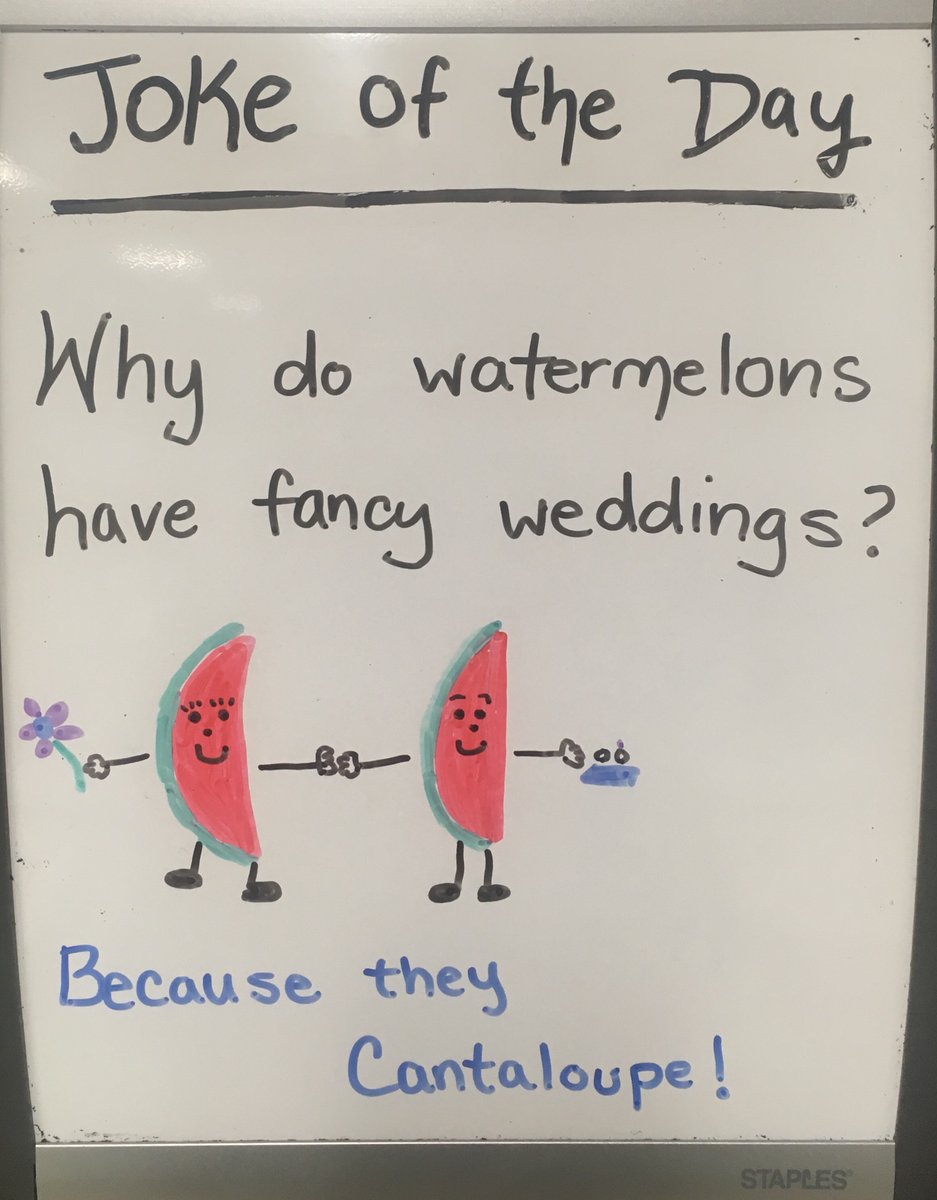 Joke of the Day
Why do watermelons
have fancy weddings?
Because they
Cantaloupe!
STAPLES